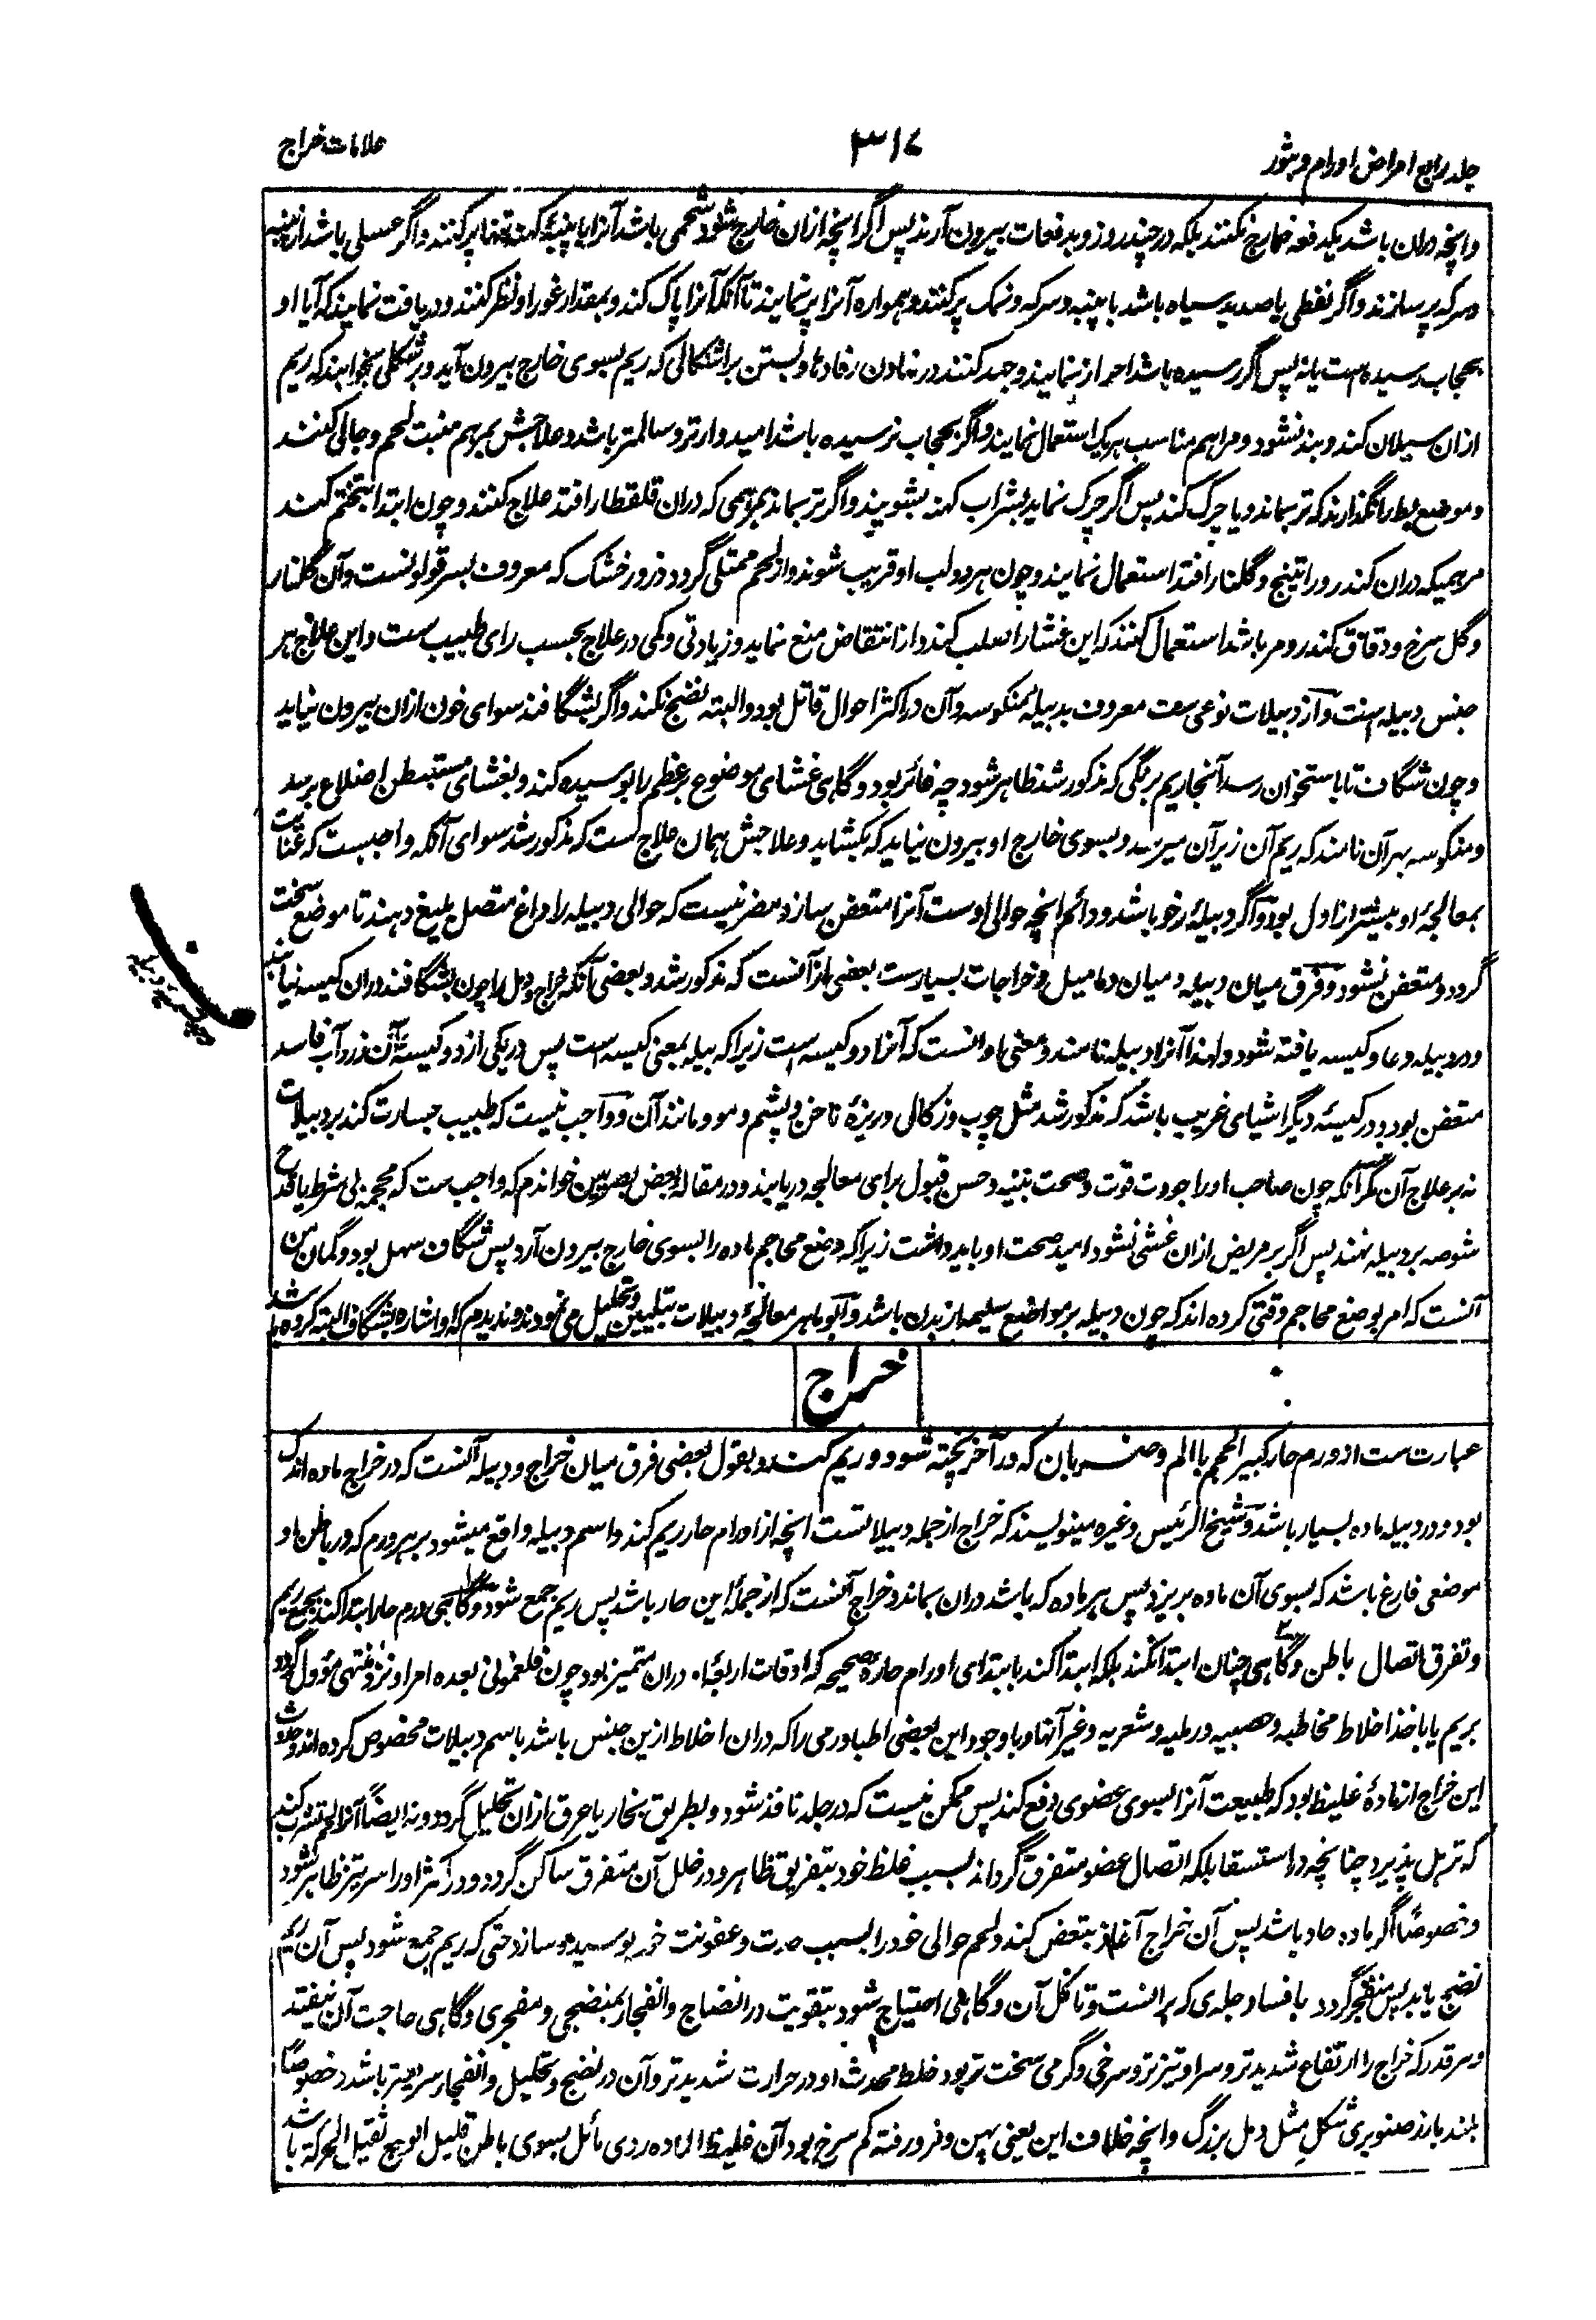 جلد رابع امراض اورام و بثور
۳۱۷
علامات خراج
وانچه دران باشد یکدفعه خارج نکنند بلکه در چند روز و بدفعات بیرون آرند پس اگر انچه ازان خارج شود شحمی باشد آنرا با پنبهٔ کهنه تنها پر کنند و اگر عسلی باشد از پنبه
و سرکه پر سازند و اگر نفطی یا صدید سیاه باشد با پنبه و سرکه و نمک پر کنند و همواره آنرا پر نمایند تا آنکه آنرا پاک کند و بمقدار غور او نظر کنند و دریافت نمایند که آیا او
بحجاب رسیده است یا نه پس اگر رسیده باشد احتراز نمایند و جهد کنند در نهادن رفادها و بستن بر اشکالی که ریم بسوی خارج بیرون آید و بر شکلی بخوابند که ریم
ازان سیلان کند و بند نشود و مراهم مناسب هر یک استعمال نمایند و اگر بحجاب نرسیده باشد امیدوارتر و سالمتر باشد و علاجش بمرهم منبت لحم و جالی کنند
و موضع بط را نگذارند که تر بماند و یا چرک کند پس اگر چرک نماید بشراب کهنه بشویند و اگر تر بماند بمرهمی که دران قلقطار افتد علاج کنند و چون ابتدا بختم کند
مرهمیکه دران کندر و راتینج و گلنار افتد استعمال نمایند و چون هر دو لب او قریب شوند و از لحم ممتلی گردد ذرور خشک که معروف بسر قولونست و آن گلنار
و گل سرخ و دقاق کندر و مر باشد استعمال کنند که این غشا را صلب کند و از انتقاض منع نماید و زیادتی و کمی در علاج بحسب رای طبیب ست و این علاج هر
جنس دبیله است و از دبیلات نوعی ست معروف بدبیلهٔ منکوسه و آن در اکثر احوال قاتل بود و البته نضج نکند و اگر بشگافند سوای خون ازان بیرون نیاید
و چون شگاف تا باستخوان رسد آنجا ریم برنگی که مذکور شد ظاهر شود چه غائر بود و گاهی غشای موضوع بر عظم را بوسیده کند و بغشای مستبطن اضلاع برسد
و منکوسه بهر آن نامند که ریم آن زیر آن میرسد و بسوی خارج او بیرون نیاید که بکشاید و علاجش همان علاج ست که مذکور شد سوای آنکه واجبست که عنایت
بمعالجهٔ او بیشتر از اول بود و اگر دبیلهٔ رخو باشد و دائم انچه حوالی اوست آنرا متعفن سازد مضر نیست که حوالی دبیله را داغ متصل بلیغ دهند تا موضع سخت
گردد و متعفن نشود و فرق میان دبیله و میان دمامیل و خراجات بسیارست بعضی ازآنست که مذکور شد و بعضی آنکه خراج و دمل را چون بشگافند دران کیسه نیابند
و در دبیله وعا و کیسه یافته شود و لهذا آنرا دبیله نامند و معنی او آنست که آنرا دو کیسه است زیرا که بیله بمعنی کیسه است پس در یکی از دو کیسهٔ آن زرد آب فاسد
متعفن بود و در کیسهٔ دیگر اشیای غریب باشد که مذکور شد مثل چوب و زکالی و ریزهٔ ناخن و پشم و مو و مانند آن و واجب نیست که طبیب جسارت کند بر دبیلات
نه بر علاج آن مگر آنکه چون صاحب او را جودت قوت و صحت بنیه و حسن قبول برای معالجه دریابند و در مقالهٔ بعض بصریین خواندم که واجب ست که محجمه بی شرط یا قدح
شوصه بر دبیله نهند پس اگر بر مریض ازان غشی نشود امید صحت او باید داشت زیرا که وضع محاجم ماده را بسوی خارج بیرون آرد پس شگاف سهل بود و گمان من
آنست که امر بوضع محاجم وقتی کرده اند که چون دبیله بر مواضع سلیمه از بدن باشد و ابو ماهر معالجهٔ دبیلات بتلیین و تحلیل می نمودند و ندیدم که او اشاره بشگاف البته کرده باشد
خراج
عبارت ست از ورم حار کبیر الحجم با الم و ضربان که در آخر پخته شود و ریم کند و بقول بعضی فرق میان خراج و دبیله آنست که در خراج ماده اندک
بود و در دبیله ماده بسیار باشد و شیخ الرئیس و غیره مینویسند که خراج از جمله دبیلاتست انچه از اورام حار ریم کند و اسم دبیله واقع میشود بر هر ورم که در باطن او
موضعی فارغ باشد که بسوی آن ماده بریزد پس هر ماده که باشد دران بماند و خراج آنست که از جملهٔ این حار باشد پس ریم جمع شود و گاهی ورم حار ابتدا کند بجمع ریم
و تفرق اتصال باطن و گاهی چنان ابتدا نکند بلکه ابتدا کند بابتدای اورام حارهٔ صحیحه که اوقات اربعهٔ او دران متمیز بود چون فلغمونی بعده امر او نزد منتهی مؤول گردد
بریم یا باخذ اخلاط مخاطیه و جصیه و رملیه و شعریه و غیر آنها و با وجود این بعضی اطبا ورمی را که دران اخلاط ازین جنس باشد باسم دبیلات مخصوص کرده اند و حدوث
این خراج از مادهٔ غلیظ بود که طبیعت آنرا بسوی عضوی دفع کند پس ممکن نیست که در جلد نافذ شود و بطریق بخار یا عرق ازان تحلیل گردد و نه ایضاً آنرا لحم تشرب کند
که ترهل پذیرد چنانچه در استسقا بلکه اتصال عضو متفرق گرداند بسبب غلظ خود بتفریق ظاهر و در خلل آن متفرق ساکن گردد و در اکثر او را سر تیز ظاهر شود
و خصوصاً اگر ماده حاد باشد پس آن خراج آغاز بتعفن کند و لحم حوالی خود را بسبب حدت و عفونت خود بوسیده سازد حتی که ریم جمع شود پس آن ریم
نضج یابد پس منفجر گردد بافساد جلدی که بر آنست و تاکل آن و گاهی احتیاج شود بتقویت در انضاج و انفجار بمنضجی و مفجری و گاهی حاجت آن نیفتد
و هر قدر که خراج را ارتفاع شدیدتر و سر او تیزتر و سرخی و گرمی سخت تر بود خلط محدث او در حرارت شدیدتر و آن در نضج و تحلیل و انفجار سریعتر باشد خصوصاً
بلند بارز صنوبری شکل مثل دمل بزرگ و انچه خلاف این یعنی پهن و فرو رفته کم سرخ بود آن غلیظ الماده ردی مائل بسوی باطن قلیل الوجع ثقیل الحرکة باشد